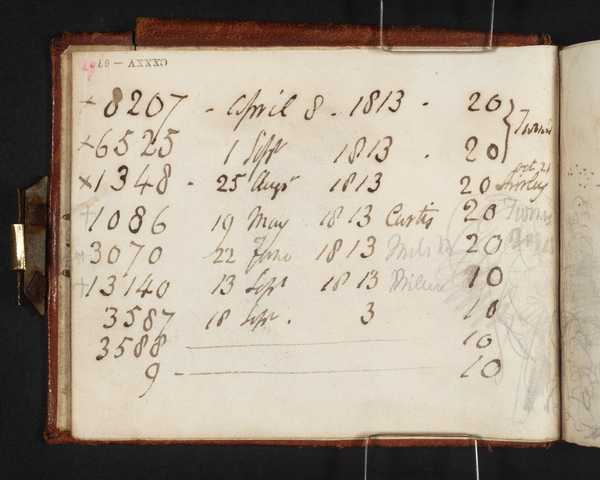 69 — AXXXO
+ 8207 - April 8 - 1813 - 20
× 6525 1 Sept 1813 - 20
× 1348 - 25 Augst 1813 20
oct 21
+ 1086 19 May 1813 Curtis 20
3070 22 June 1813 20
+ 13140 13 Sept 1813 10
3587 18 Sept. 3 10
3588 — 10
9 — 10